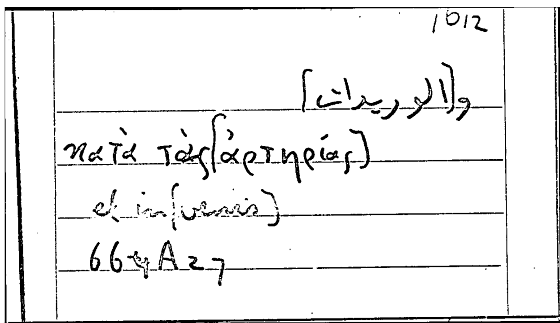 1612
و[الوريدات]
κατὰ τὰς [ἀρτηρίας]
et in [venis]
66 A 27